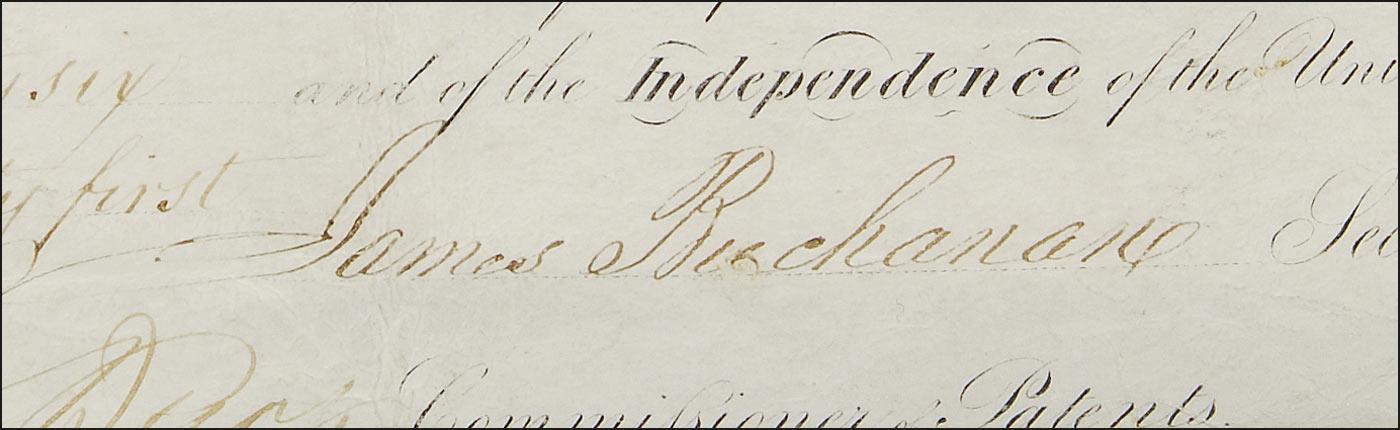 six and of the Independence of the Uni
ty first James Buchanan Sec
Commissioner of Patents.